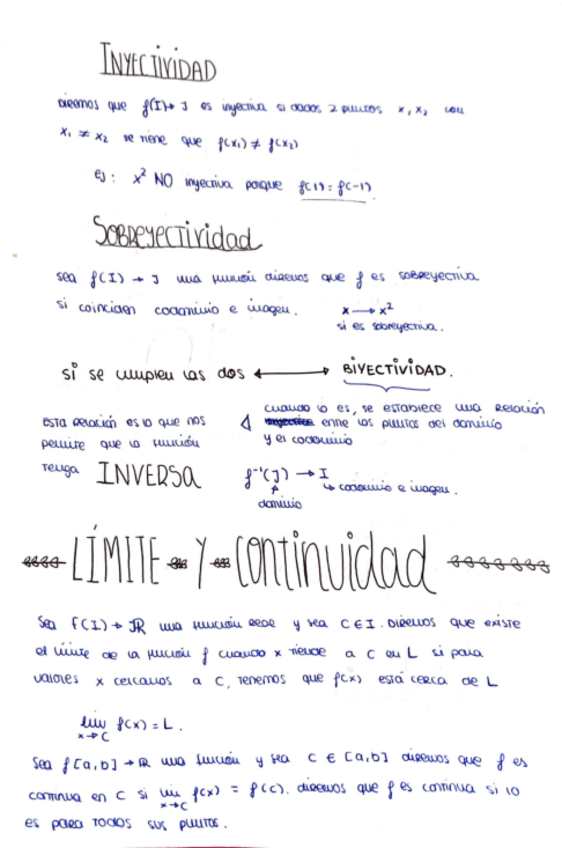 INYECTIVIDAD
Diremos que f(I)→ J es inyectiva si dados 2 puntos x₁ x₂ con
x₁ ≠ x₂ se tiene que f(x₁) ≠ f(x₂)
ej: x² NO inyectiva porque f(1) = f(-1)
SOBREYECTIVIDAD
sea f(I) → J una función diremos que f es sobreyectiva
si coinciden codominio e imagen.
x → x²
si es sobreyectiva.
si se cumplen las dos ↔ BIYECTIVIDAD.
cuando lo es, se establece una relación
entre los puntos del dominio
y el codominio
Esta relación es lo que nos
permite que la función
tenga INVERSA
f⁻¹(J) → I
↳ codominio e imagen.
dominio
LÍMITE Y Continuidad
Sea f(I) → ℝ una función real y sea C ∈ I. Diremos que existe
el límite de la función f cuando x tiende a C en L si para
valores x cercanos a C, tenemos que f(x) está cerca de L
lim f(x) = L.
x→C
Sea f[a,b] → ℝ una función y sea C ∈ [a,b] diremos que f es
continua en C si lim f(x) = f(c). diremos que f es continua si lo
x→C
es para todos sus puntos.